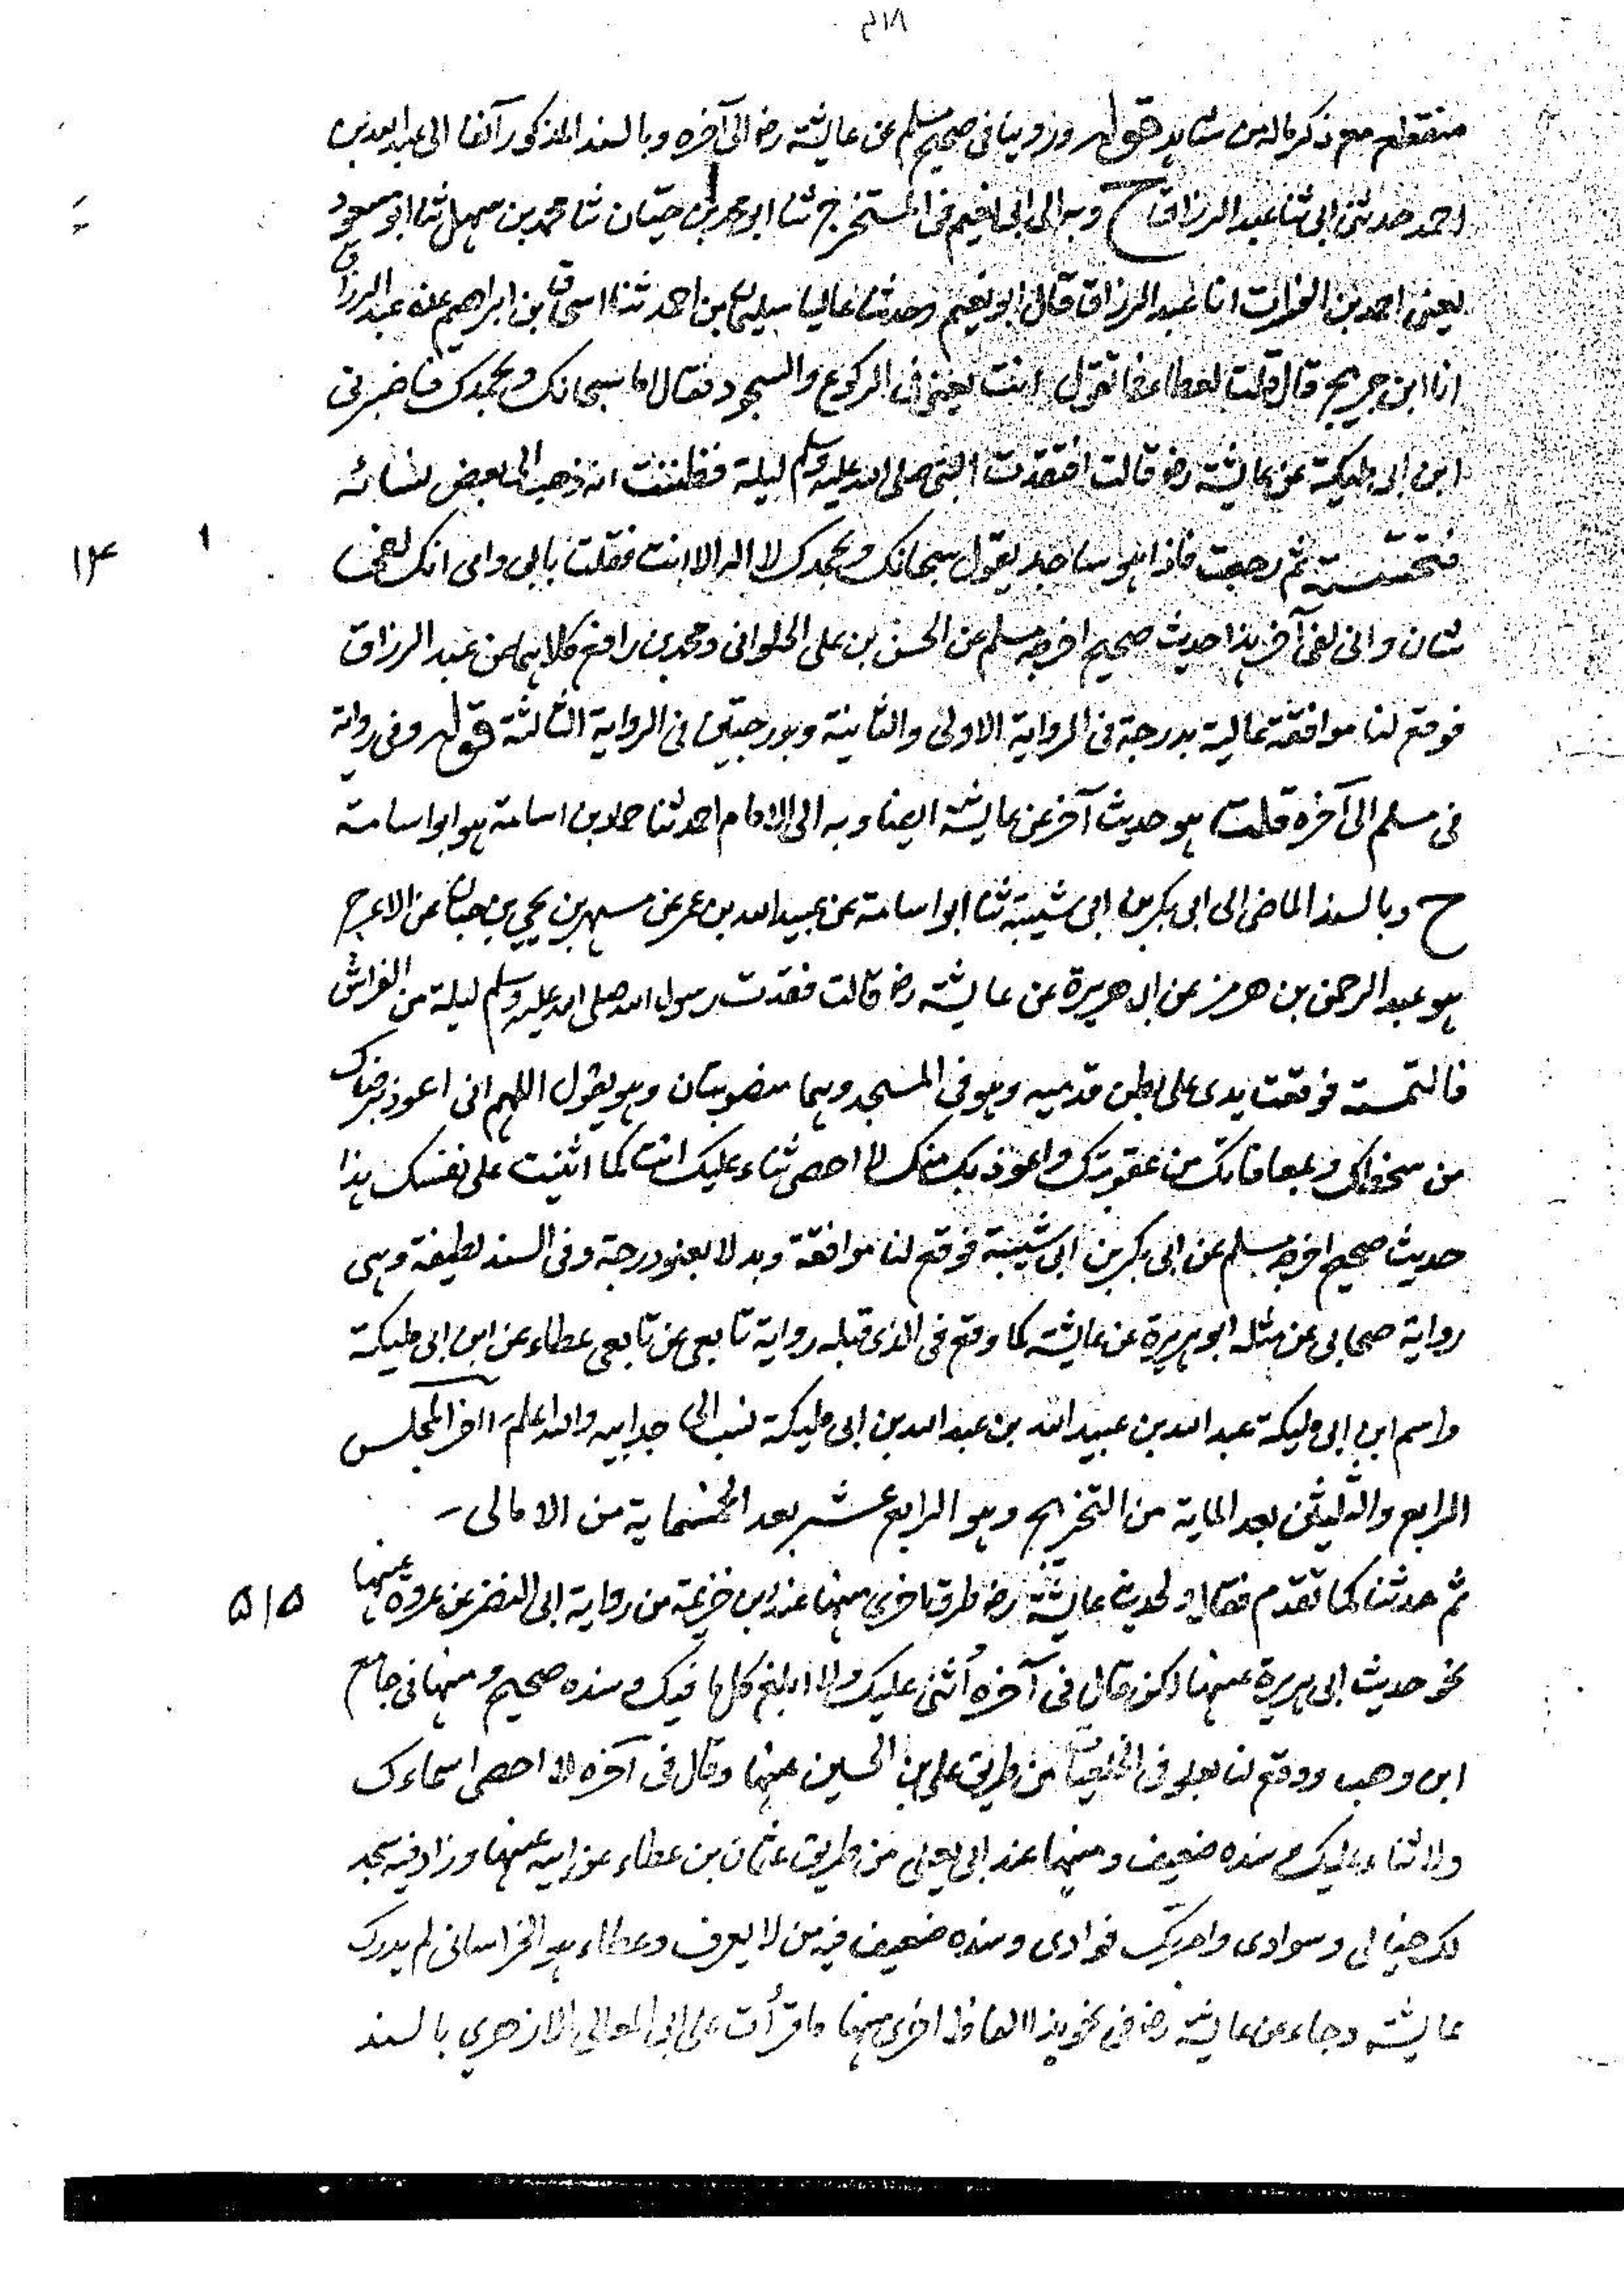 ۲۱۸
منقطع مع ذكر ماله من شاهد قوله وروينا فى صحيح مسلم عن عايشة رض الى آخره وبالسند المذكور آنفا الى عبد الله بن
احمد حدثنى ابى ثنا عبد الرزاق ح وبه الى ابى نعيم فى المستخرج ثنا ابو محمد بن حيّان ثنا محمد بن سهل ثنا ابو مسعود
يعنى احمد بن الفرات انا عبد الرزاق قال ابو نعيم وحدثنا عاليا سليمان بن احمد ثنا اسحاق بن ابراهيم عن عبد الرزاق
انا ابن جريج قال قلت لعطاء ما تقول انت يعنى فى الركوع والسجود فقال اما سبحانك وبحمدك فاخبرنى
ابن ابى مليكة عن عايشة رض قالت افتقدت النبى صلى الله عليه وسلم ليلة فظننت انه ذهب الى بعض نسائه
فتحسّسته ثم رجعت فاذا هو ساجد يقول سبحانك وبحمدك لا اله الا انت فقلت بابى وامى انك لفى
۱۴ ۱
شان وانى لفى آخر هذا حديث صحيح اخرجه مسلم عن الحسن بن على الحلوانى ومحمد بن رافع كلاهما عن عبد الرزاق
فوقع لنا موافقة عالية بدرجة فى الرواية الاولى والثانية وبدرجتين فى الرواية الثالثة قوله وفى رواية
فى مسلم الى آخره قلت هو حديث آخر عن عايشة ايضا وبه الى الامام احمد ثنا حماد بن اسامة هو ابو اسامة
ح وبالسند الماضى الى ابى بكر بن ابى شيبة ثنا ابو اسامة عن عبيد الله بن عمر عن محمد بن يحيى بن حبان عن الاعرج
هو عبد الرحمن بن هرمز عن ابى هريرة عن عايشة رض قالت فقدت رسول الله صلى الله عليه وسلم ليلة من الفراش
فالتمسته فوقعت يدى على بطن قدميه وهو فى المسجد وهما منصوبتان وهو يقول اللهم انى اعوذ برضاك
من سخطك وبمعافاتك من عقوبتك واعوذ بك منك لا احصى ثناء عليك انت كما اثنيت على نفسك هذا
حديث صحيح اخرجه مسلم عن ابى بكر بن ابى شيبة فوقع لنا موافقة وبدلا بعلو درجة وفى السند لطيفة وهى
رواية صحابى عن مثله ابو هريرة عن عايشة كما وقع فى الذى قبله رواية تابعى عن تابعى عطاء عن ابن ابى مليكة
واسم ابن ابى مليكة عبد الله بن عبيد الله بن عبد الله بن ابى مليكة نسب الى جد ابيه والله اعلم آخر المجلس
الرابع والثلثين بعد الماية من التخريج وهو الرابع عشر بعد الخمسماية من الامالى
ثم حدثنا كما تقدم فقال ولحديث عايشة رض طرق اخرى منها عند ابن خزيمة من رواية ابى النضر عن عروة عنها
۵۱۵
نحو حديث ابى هريرة عنها لكن قال فى آخره أثنى عليك ولا ابلغ كل ما فيك وسنده صحيح ومنها فى جامع
ابن وهب ووقع لنا بعلو فى الخلعيات من طريق على بن الحسين عنها وقال فى آخره لا احصى اسماءك
ولا ثناء عليك وسنده ضعيف ومنها عند ابى يعلى من طريق عثمان بن عطاء عن ابيه عنها وزاد فيه سجد
لك خيالى وسوادى وآمن بك فوادى وسنده ضعيف فيه من لا يعرف وعطاء هو الخراسانى لم يدرك
عايشة وجاء عن عايشة رض فى نحو هذا الفاظ اخرى منها ما قرأت على ابى المعالى الازهرى بالسند